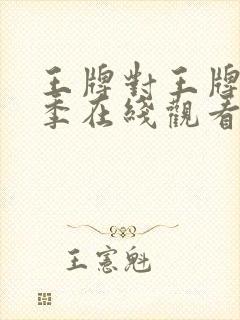 王牌對王牌
季在綫觀看
王憲魁